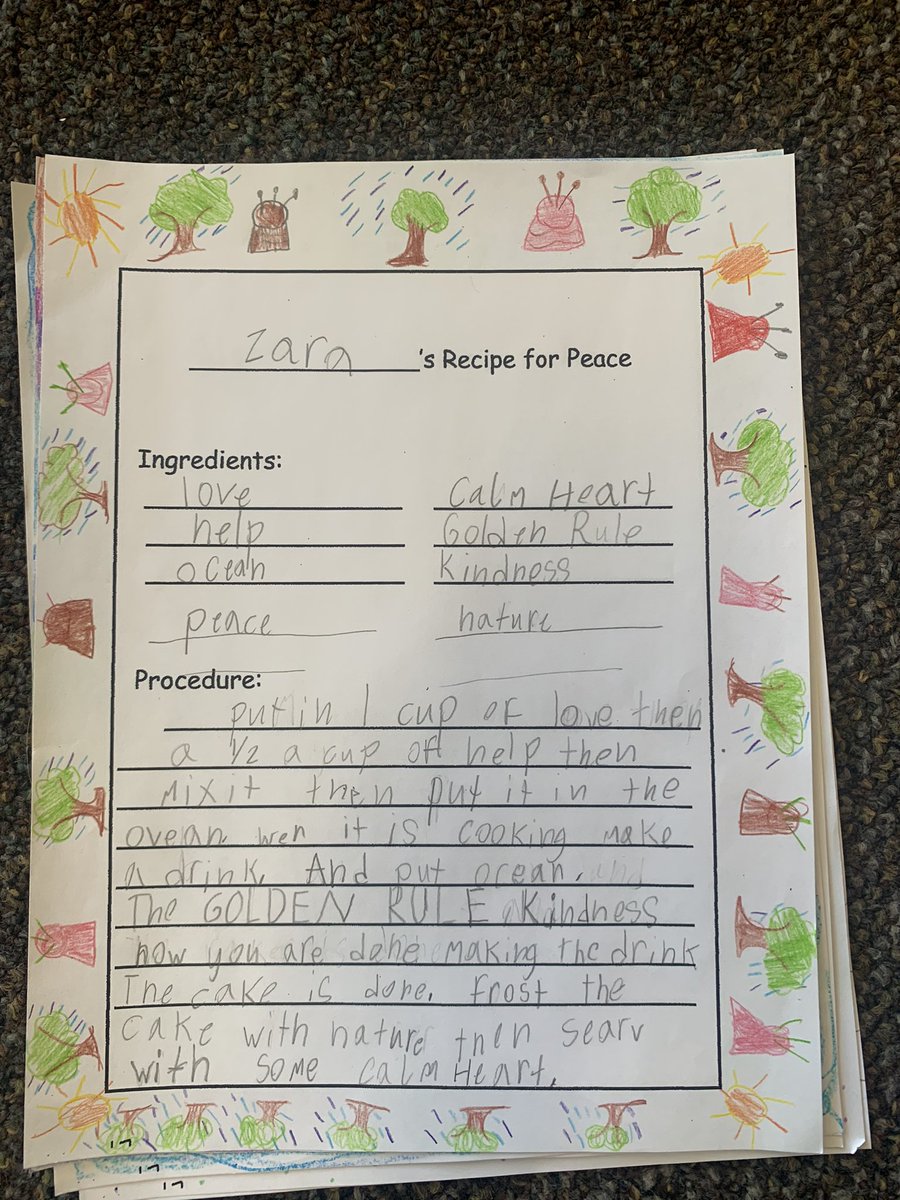 Zara's Recipe for Peace
Ingredients:
love Calm Heart
help Golden Rule
ocean Kindness
peace nature
Procedure:
put in 1 cup of love then
a 1/2 a cup of help then
Mix it then put it in the
ovean. wen it is cooking make
a drink. And put ocean.
The GOLDEN RULE Kindness
now you are done making the drink
The cake is done. frost the
cake with nature then searv
with some calm Heart.